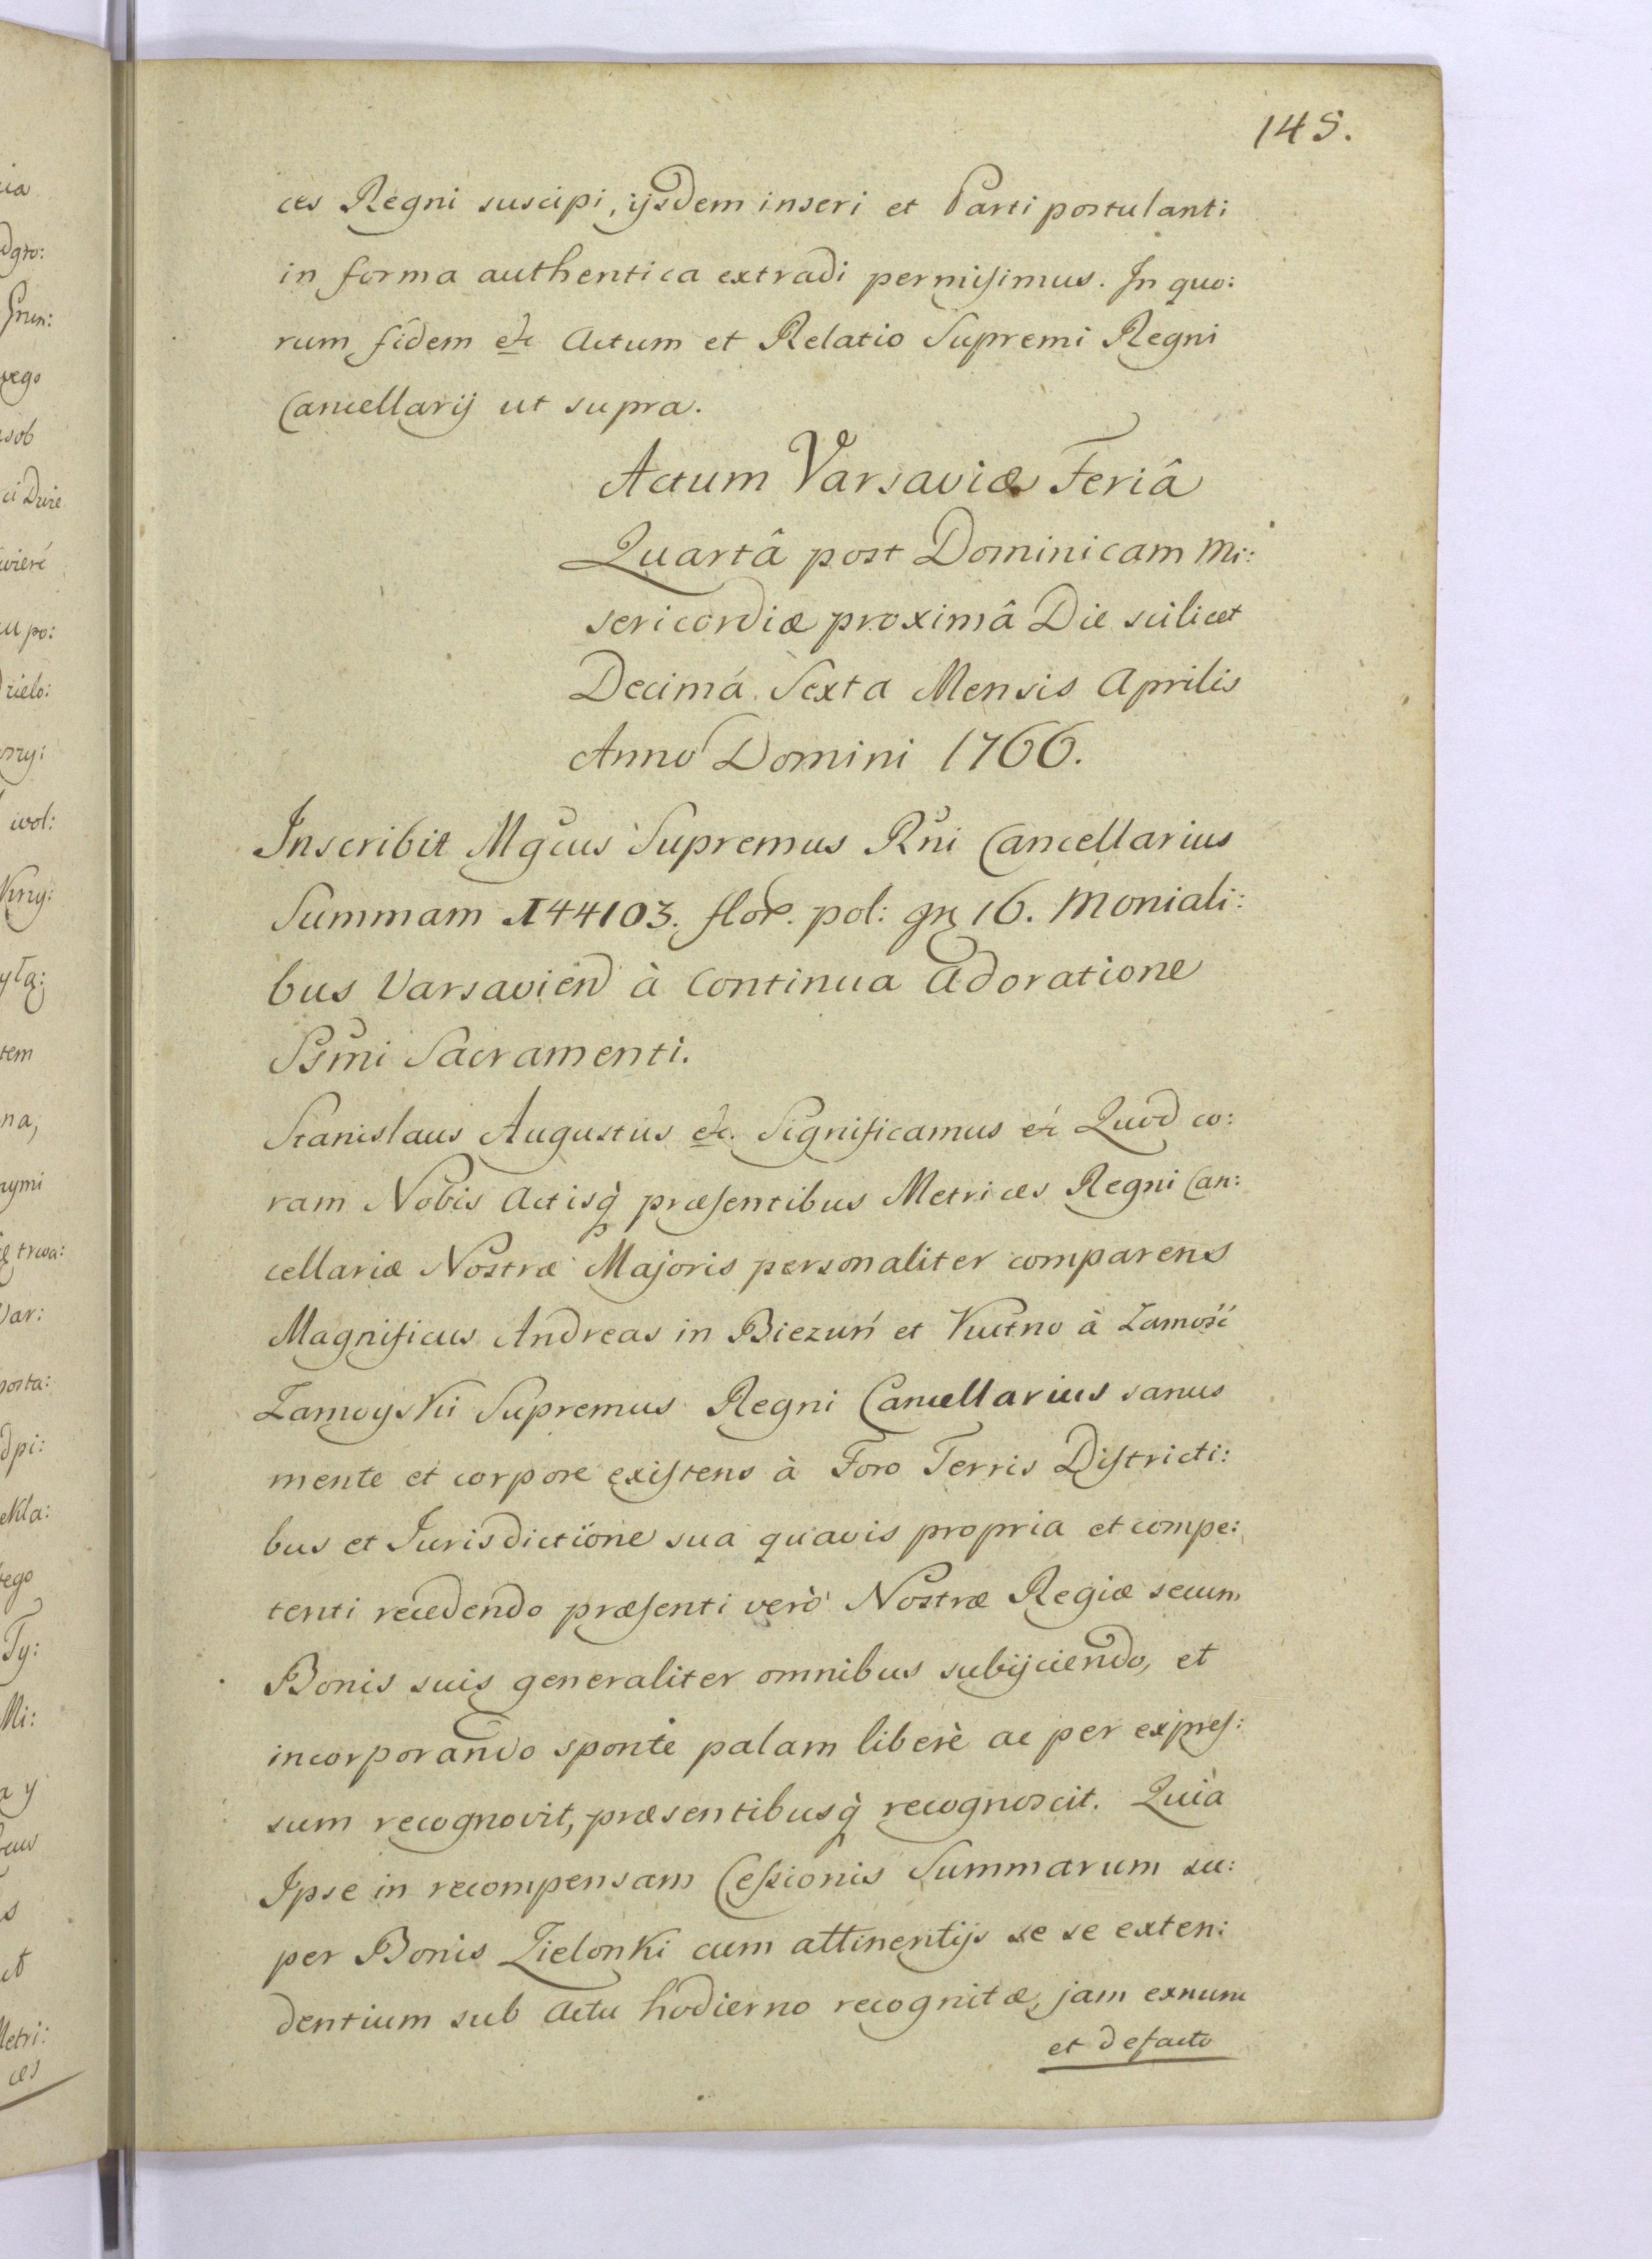 145.
ces Regni suscipi, ijsdem inseri et Parti postulanti
in forma authentica extradi permisimus. In quo:
rum fidem etc Actum et Relatio Supremi Regni
Cancellarij ut supra.
Actum Varsaviæ Feriâ
Quartâ post Dominicam Mi:
sericordiæ proximâ Die scilicet
Decimá Sexta Mensis Aprilis
Anno Domini 1766.
Inscribit Mgcus Supremus Rni Cancellarius
Summam 144103. flor. pol: gr 16. Moniali:
bus Varsavien à Continua Adoratione
Ssmi Sacramenti.
Stanislaus Augustus etc. Significamus etc Quod co:
ram Nobis Actisq̀ præsentibus Metrices Regni Can:
cellariæ Nostræ Majoris personaliter comparens
Magnificus Andreas in Biezuń et Kutno à Zamość
Zamoyski Supremus Regni Cancellarius sanus
mente et corpore existens à Foro Terris Districti:
bus et Jurisdictione sua quavis propria et compe:
tenti recedendo præsenti verò Nostræ Regiæ secum
Bonis suis generaliter omnibus subijciendo, et
incorporando sponte palam liberè ac per expres:
sum recognovit, præsentibusq̀ recognoscit. Quià
Ipse in recompensam Cessionis Summarum su:
per Bonis Zielonki cum attinentijs se se exten:
dentium sub Actu hodierno recognitæ, jam exnunc
et defacto
ia
dgro:
wego
sob
ci Dwie
wieré
u po:
wol:
tem
na,
nymi
trwa:
Var:
posta:
dpi:
ekla:
tego
Ty:
Mi:
a y
Metri:
ces